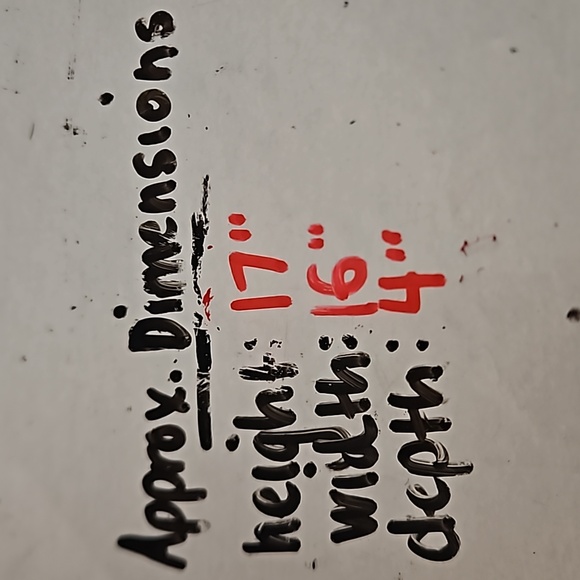 Approx. Dimensions
height: 17"
width: 16"
depth: 4"